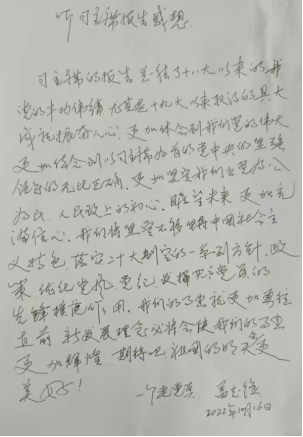 听习主席报告感想
习主席的报告总结了十八大以来的我
党的丰功伟绩尤其是十九大以来取得的具大
成就振奋人心,更加体会到我们党的伟大
更加体会到以习主席为首的党中央的坚强
领导的无比正确,更加坚定我们立党为公
为民,人民政上的初心。瞻望未来更加充
满信心。我们将坚定不移坚持中国社会主
义特色,落实二十大制定的一系列方针,政
策,优化党风,党纪,发挥共产党员的
先锋模范作用。我们的事业就更加勇往
直前 新发展理念必将会使我们的事业
更加辉煌 期待吧祖国的明天更
美好!
一个老党员 孟
2022年10月16日